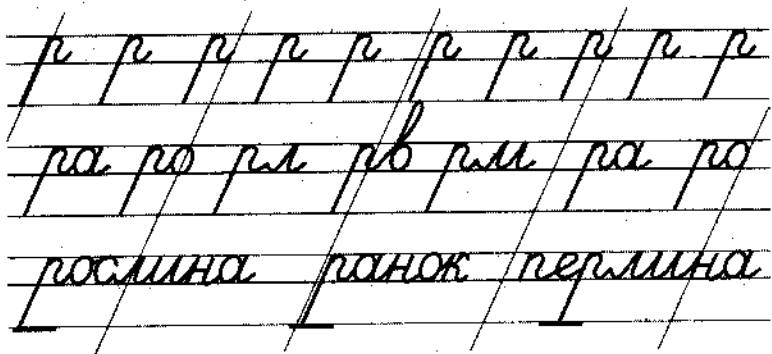 р р р р р р р р р р
ра ро рл рв рм ра ро
рослина ранок перлина